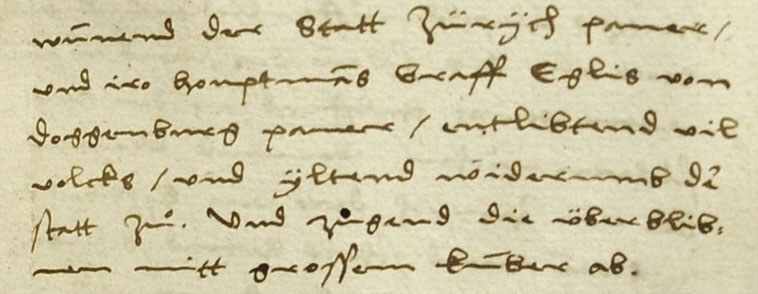 wun̄end der Statt Zürÿch paner /
und iro houptmās Graff Eglis von
Doggenburg paner / entlibtend vil
volcks / und ÿltend widerumb der̄
statt zuͦ. Und zugend die überblib,
nen mitt grossem kum̄ber ab.